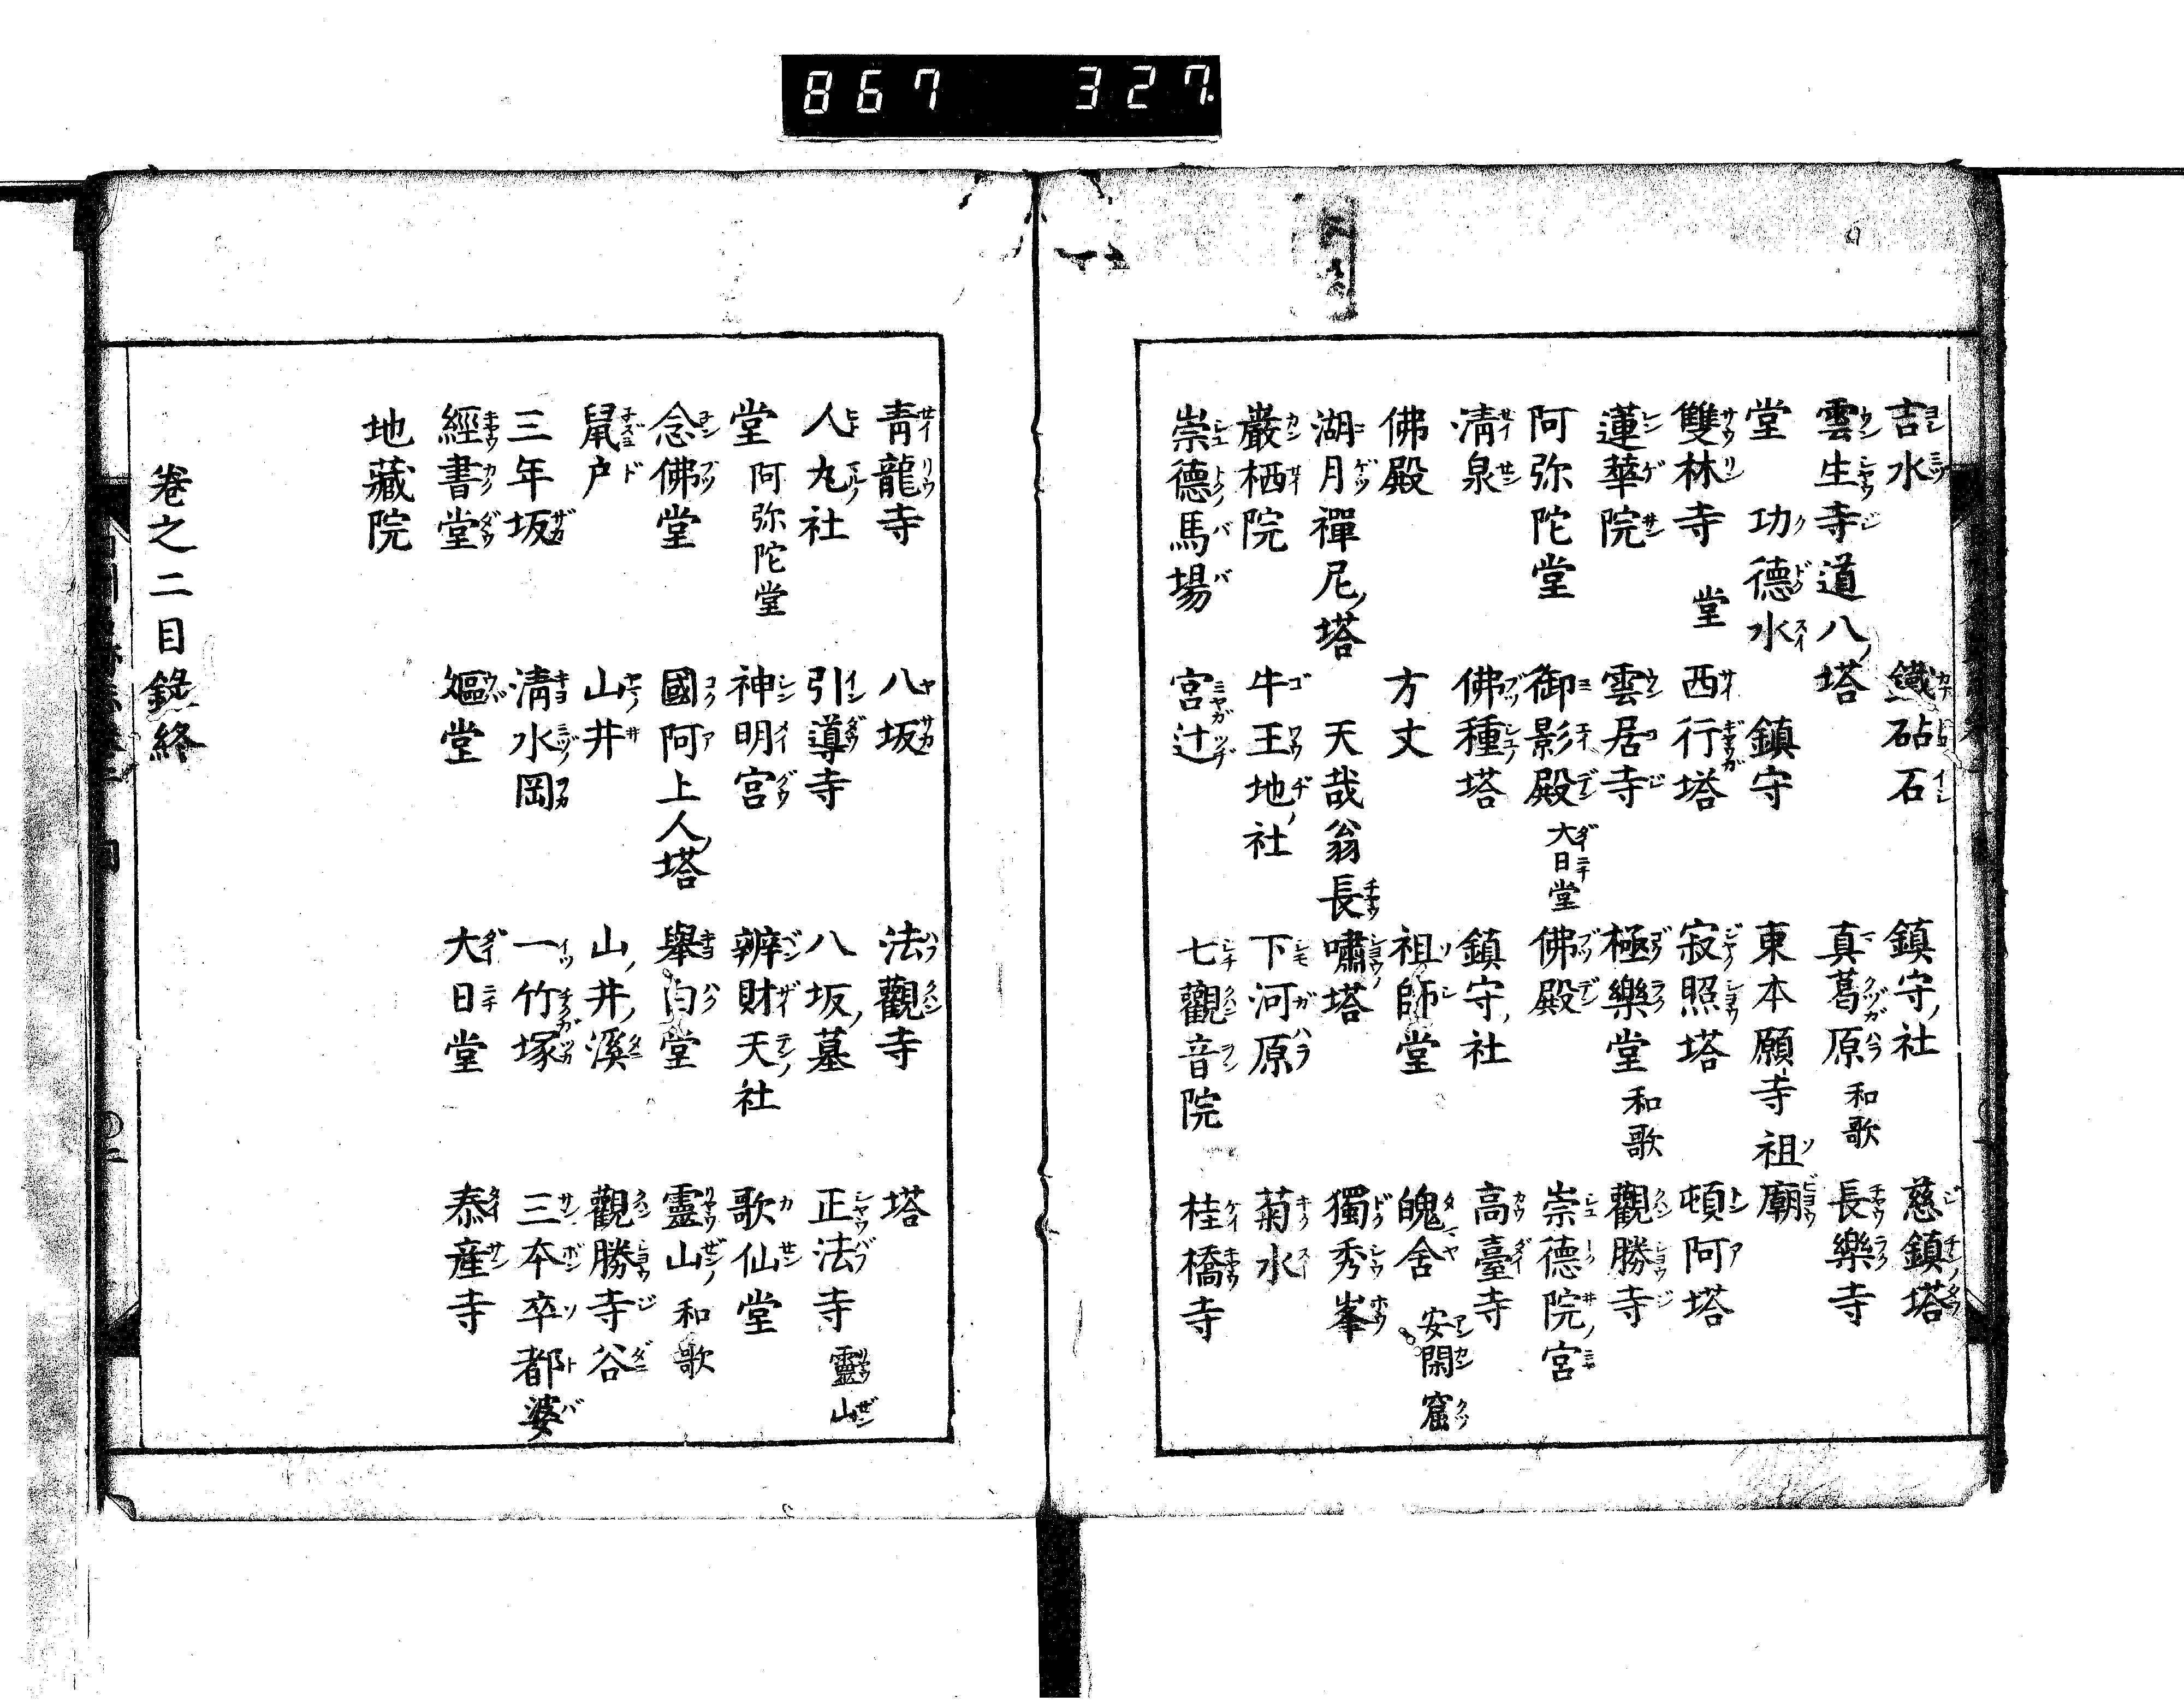 867 327.
吉水 鐵砧石 鎮守ノ社 慈鎮塔
雲生寺道八ノ塔 真葛原 和歌 長樂寺
堂 功德水 鎮守 東本願寺 祖廟
雙林寺 堂 西行塔 寂照塔 頓阿塔
蓮華院 雲居寺 極樂堂 和歌 觀勝寺
阿弥陀堂 御影殿 大日堂 佛殿 崇德院宮
清泉 佛種塔 鎮守ノ社 高臺寺
佛殿 方丈 祖師堂 傀舍 安閑窟
湖月禪尼ノ塔 天哉翁長嘯塔 獨秀峯
巌栖院 牛王地ノ社 下河原 菊水
崇德馬場 宮辻 七觀音院 桂橋寺
青龍寺 八坂 法觀寺 塔
人丸社 引導寺 八坂ノ墓 正法寺 靈山
堂 阿弥陀堂 神明宮 辨財天社 歌仙堂
念佛堂 國阿上人ノ塔 舉白堂 靈山 和歌
鼠戸 山井 山ノ井ノ溪 觀勝寺谷
三年坂 清水岡 一竹塚 三本卒都婆
經書堂 嫗堂 大日堂 泰産寺
地藏院
卷之二目錄終